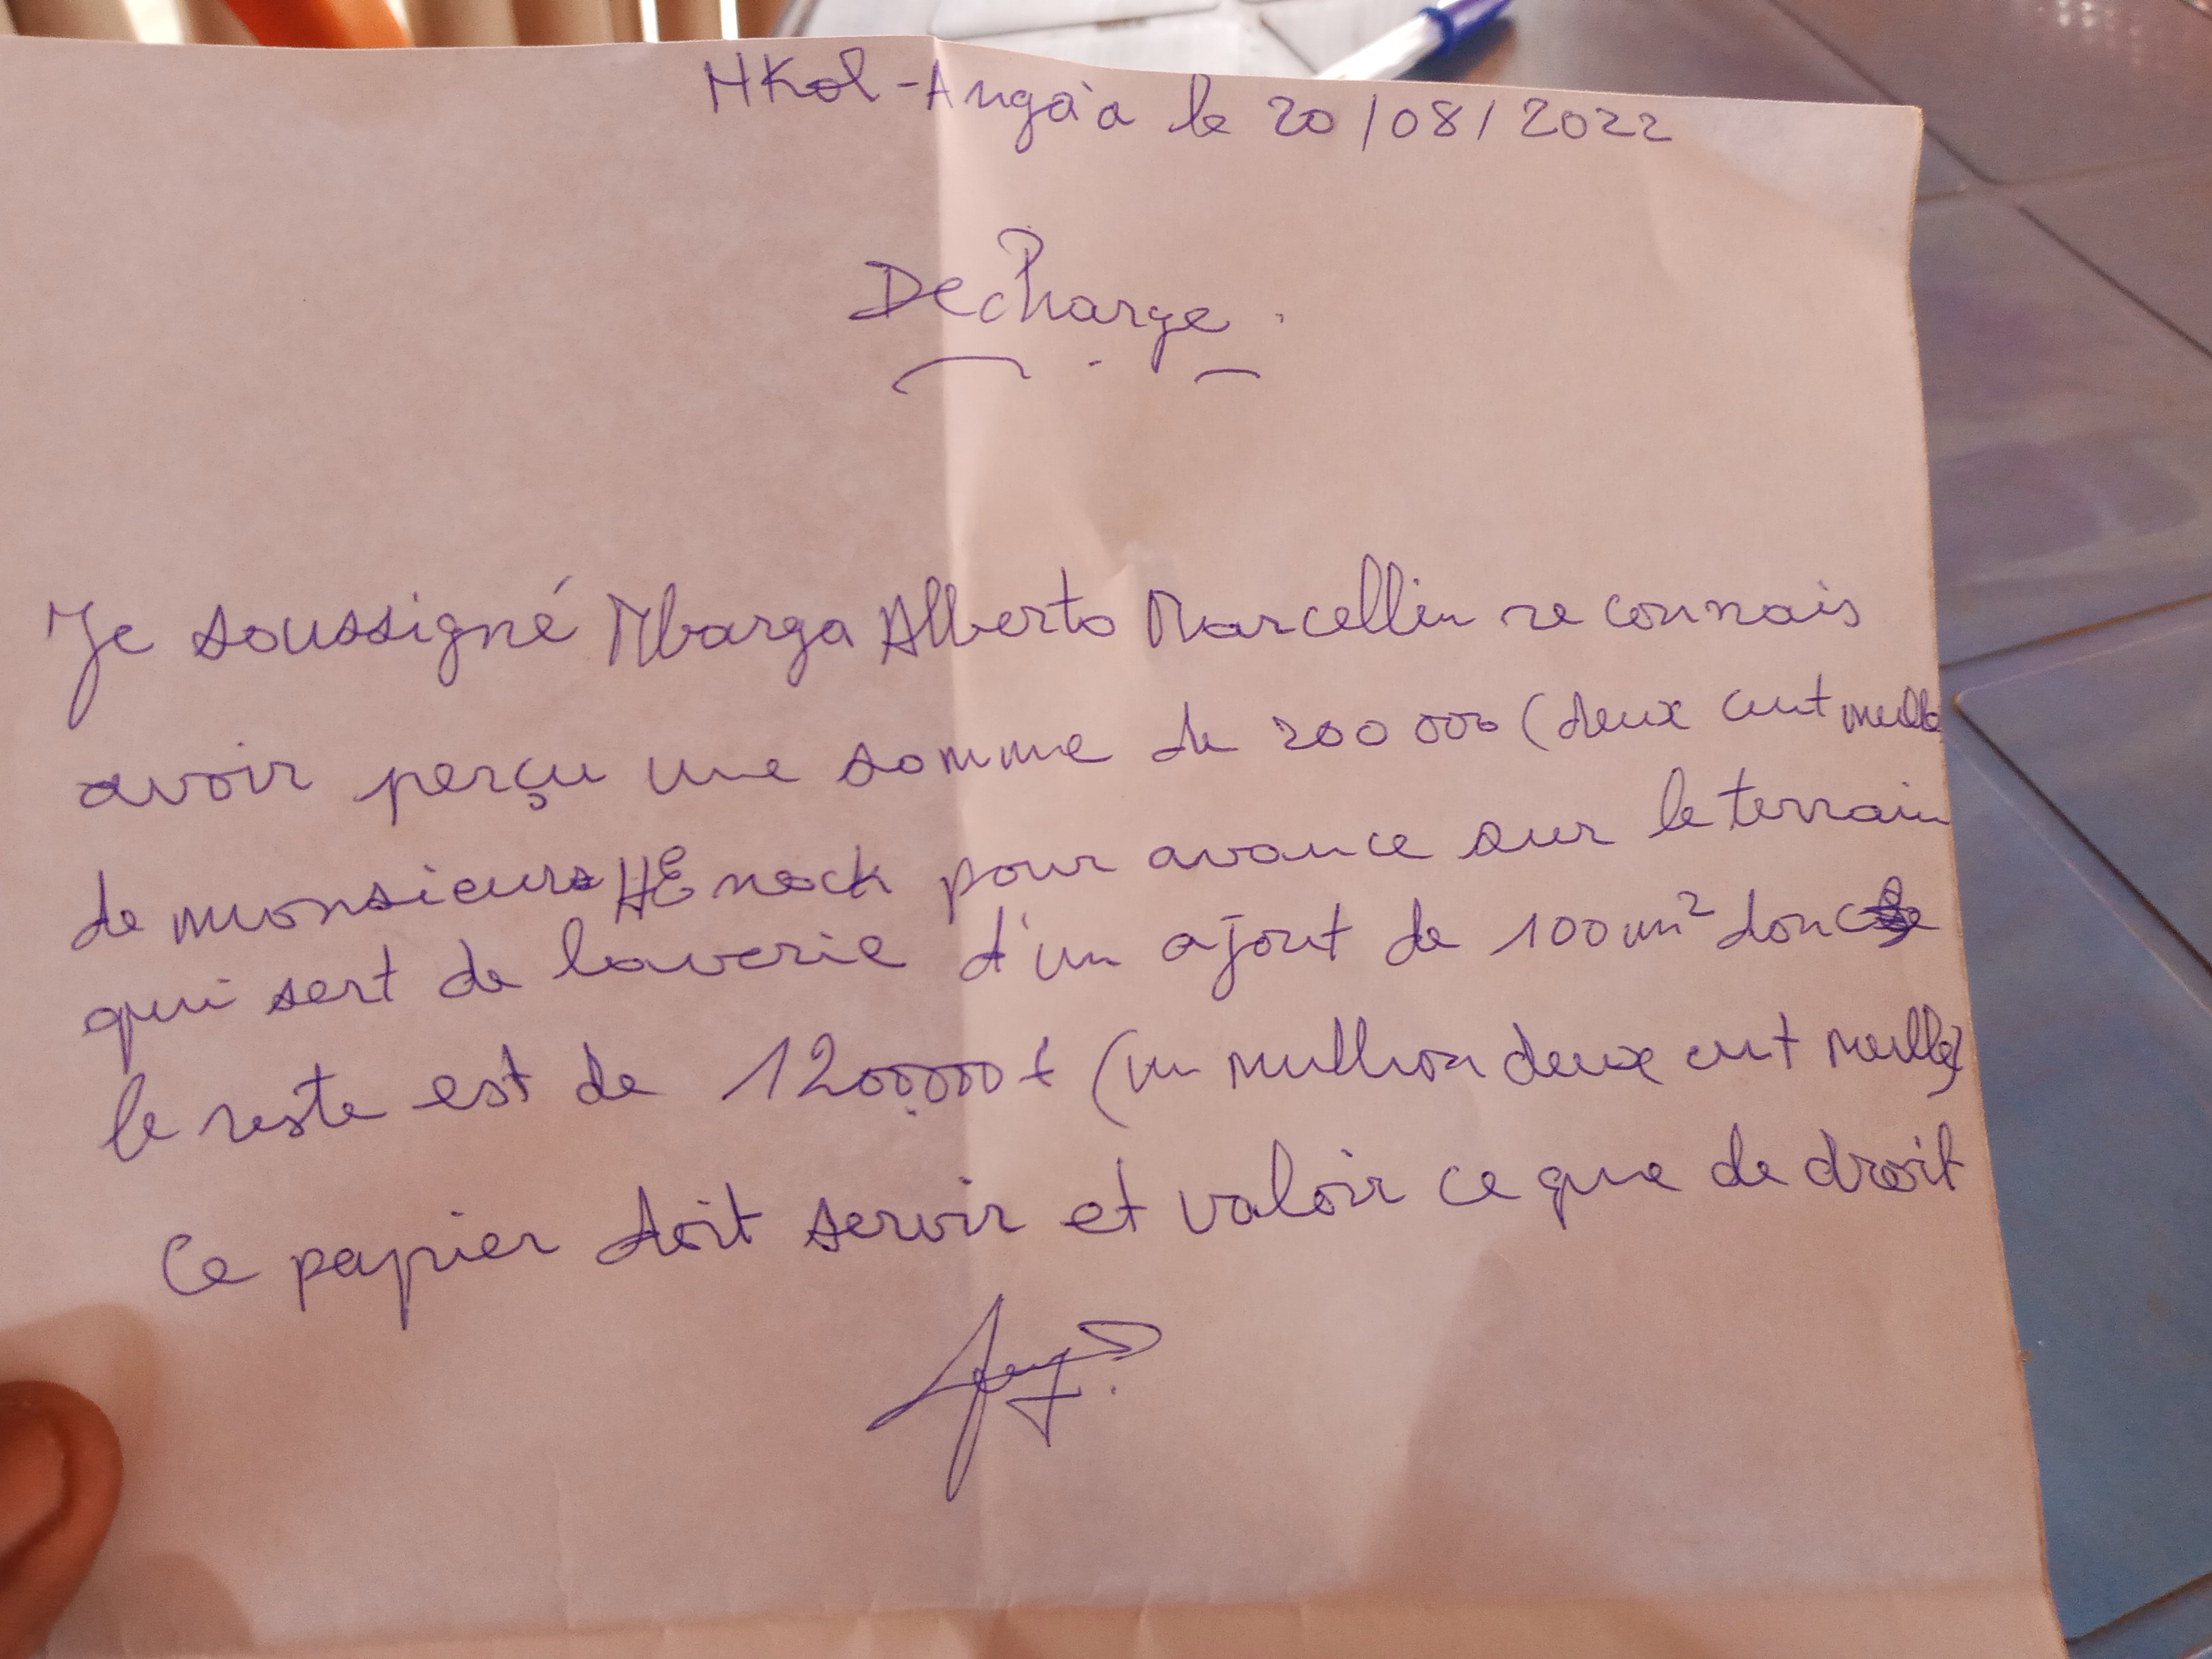 NKol-Anga'a le 20/08/2022
Decharge.
Je soussigné Mbarga Alberto Marcellin reconnais
avoir perçu une somme de 200 000 (deux cent mille
de monsieur HEnock pour avance sur le terrain
qui sert de laverie d'un ajout de 100 m² donc
le reste est de 1200000 f (un million deux cent mille)
Ce papier doit servir et valoir ce que de droit